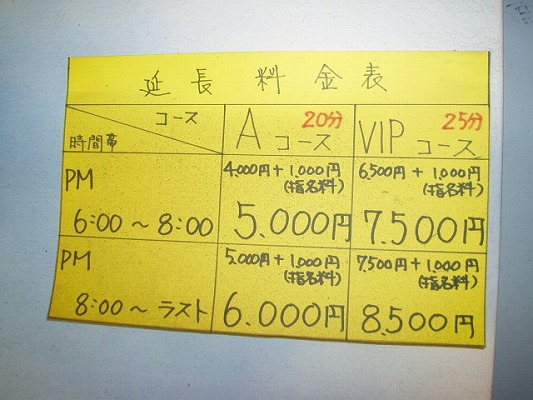 延長料金表
コース
時間帯
20分
Aコース
25分
VIPコース
PM
6:00～8:00
4.000円+1.000円
(指名料)
5.000円
6.500円+1.000円
(指名料)
7.500円
PM
8:00～ラスト
5.000円+1.000円
(指名料)
6.000円
7.500円+1.000円
(指名料)
8.500円